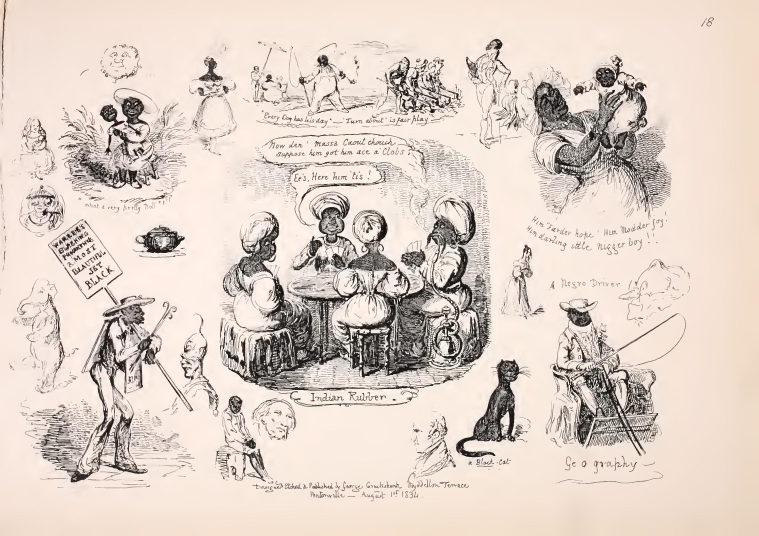 18
"Every Dog has his day" — "Turn about is fair play"
Now den' Massa Caoutchouch
suppose him got him ace a' Clobs;
Es's, Here him 'tis!
"what a very pretty Doll"!!
WARREN'S
A MOST
BEAUTIFUL
JET
BLACK
Him Farder hope' Him Modder joy!
Him darling little Nigger boy!!!
A Negro Driver
Indian Rubber
a Black-Cat
Geography
Designed Etched & Published by George Cruikshank Myddelton Terrace
Pentonville — August 1st 1834.